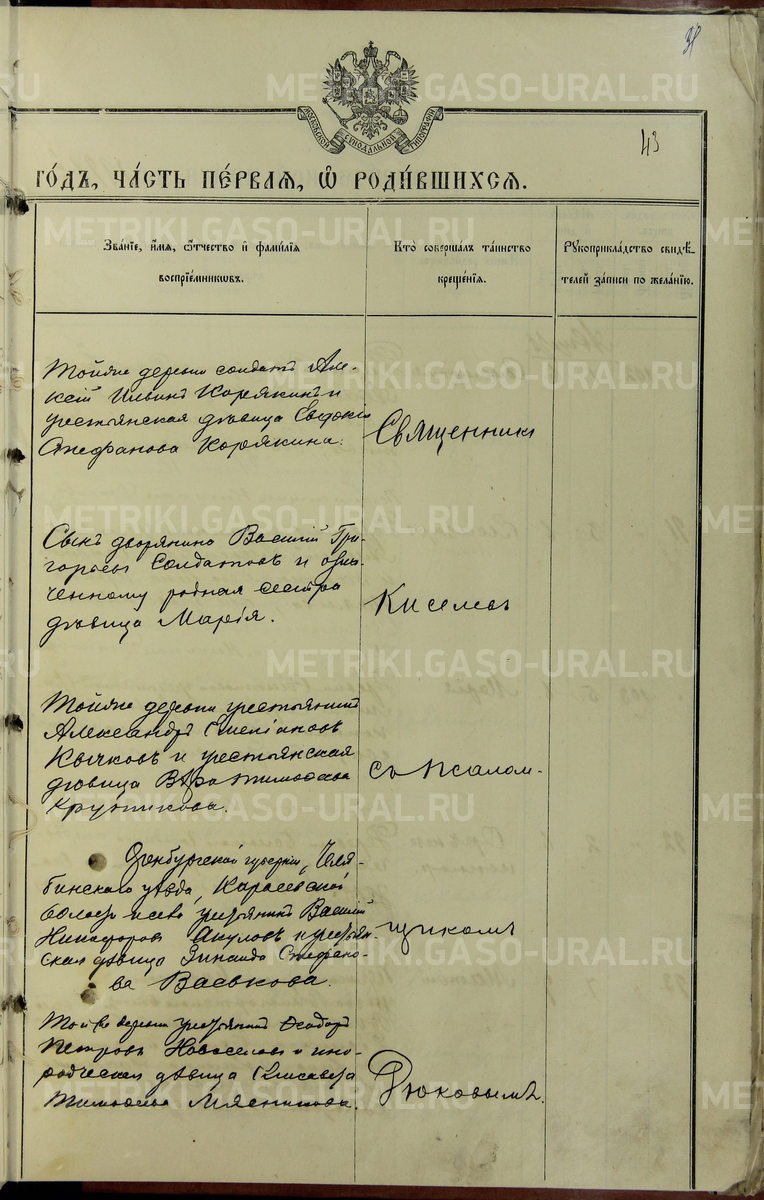 43
МОСКОВСКОЙ СѴНОДАЛЬНОЙ ТИПОГРАФІИ
ГО́ДЪ, ЧА́СТЬ ПЕ́РВАЯ, Ѿ РОДИ́ВШИХСЯ.
Зва́нїе, и́мя, ѻ́тчество и фами́лїя
воспрїе́мникѡвъ.
Кто̀ соверша́лъ та́инство
креще́нїя.
Рꙋкоприкла́дство свидѣ́-
телей за́писи по жела́нїю.
Тойже деревни солдатъ Але-
ксѣй Ильинъ Корякинъ и
крестьянская дѣвица Евдокія
Стефанова Корякина.
Священникъ
Сынъ дворянина Василій Гри-
горьевъ Солдатовъ и озна-
ченному родная сестра
дѣвица Марія.
Киселевъ
Тойже деревни крестьянинъ
Александръ
Кычковъ и крестьянская
дѣвица Вѣра Тимофеева
Крутикова.
съ псалом-
Оренбургской губерніи, Челя-
бинскаго уѣзда, Карасевской
волости и села крестьянинъ Василій
Никифоровъ Акуловъ и крестьян-
ская дѣвица Зинаида Стефано-
ва Ваевкова.
щикомъ
Той же деревни крестьянинъ Ѳеодоръ
Петровъ Новоселовъ и ино-
родческая дѣвица Елисавета
Тимофеева Мясникова.
Дюковымъ.
METRIKI.GASO-URAL.RU